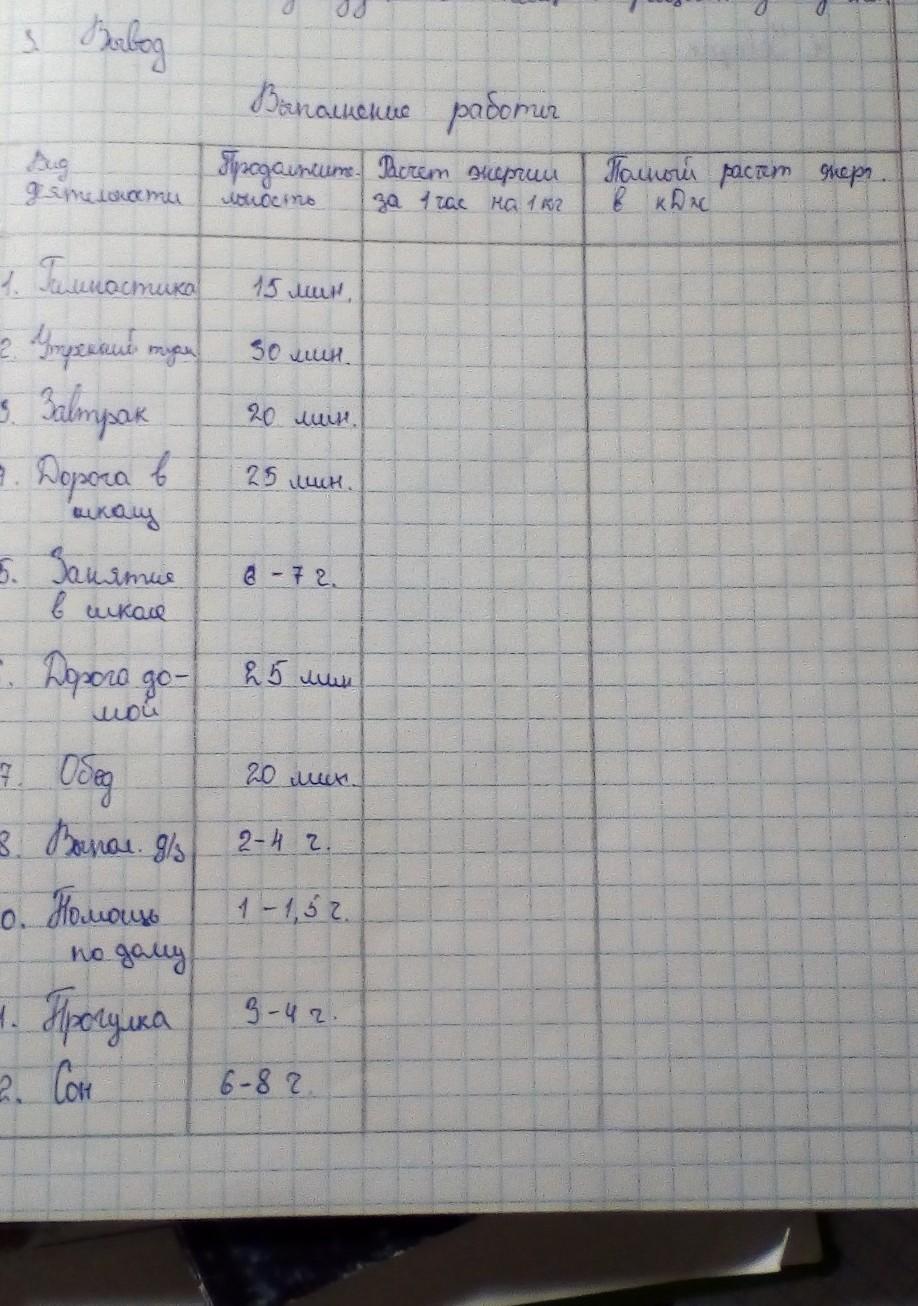 3. Вывод
Выполнение работы
Вид деятельности
Продолжительность
Расчет энергии за 1 час на 1 кг
Полный расчет энерг. в кДж
1. Гимнастика 15 мин.
2. Утренний туал 30 мин.
3. Завтрак 20 мин.
Дорога в 25 мин.
школу
5. Занятие 6-7 г.
в школе
Дорога до- 25 мин
мой
7. Обед 20 мин.
8. Выпол. д/з 2-4 г.
0. Помощь 1-1,5 г.
по дому
1. Прогулка 3-4 г.
2. Сон 6-8 г.